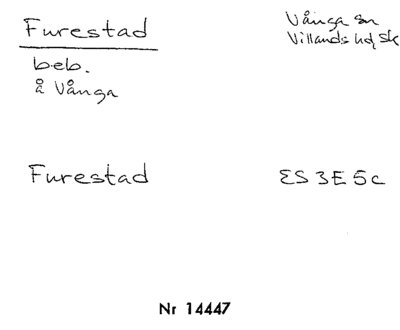 Furestad
Vånga sn
Villands hd Sk
beb.
å Vånga
Furestad
ES 3E 5c
Nr 14447